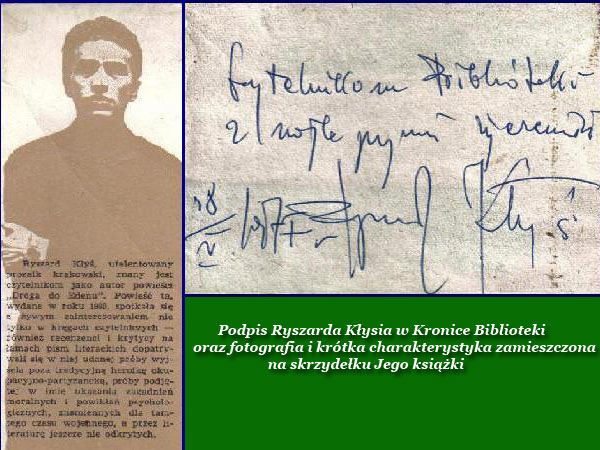 Czytelnikom Biblioteki
z najlepszymi życzeniami
Ryszard Kłyś
Ryszard Kłyś, utalentowany
prozaik krakowski, znany jest
czytelnikom jako autor powieści
„Droga do Edenu". Powieść ta,
wydana w roku spotkała się
z żywym zainteresowaniem nie
tylko w kręgach czytelniczych —
również recenzenci i krytycy na
łamach pism literackich dopatry-
wali się w niej udanej próby wyj-
ścia poza tradycyjną heroikę oku-
pacyjno-partyzancką, próby podję-
tej w imię ukazania zagadnień
moralnych i powikłań psycholo-
gicznych, znamiennych dla tam-
tego czasu wojennego, a przez li-
teraturę jeszcze nie odkrytych.
Podpis Ryszarda Kłysia w Kronice Biblioteki
oraz fotografia i krótka charakterystyka zamieszczona
na skrzydełku Jego książki